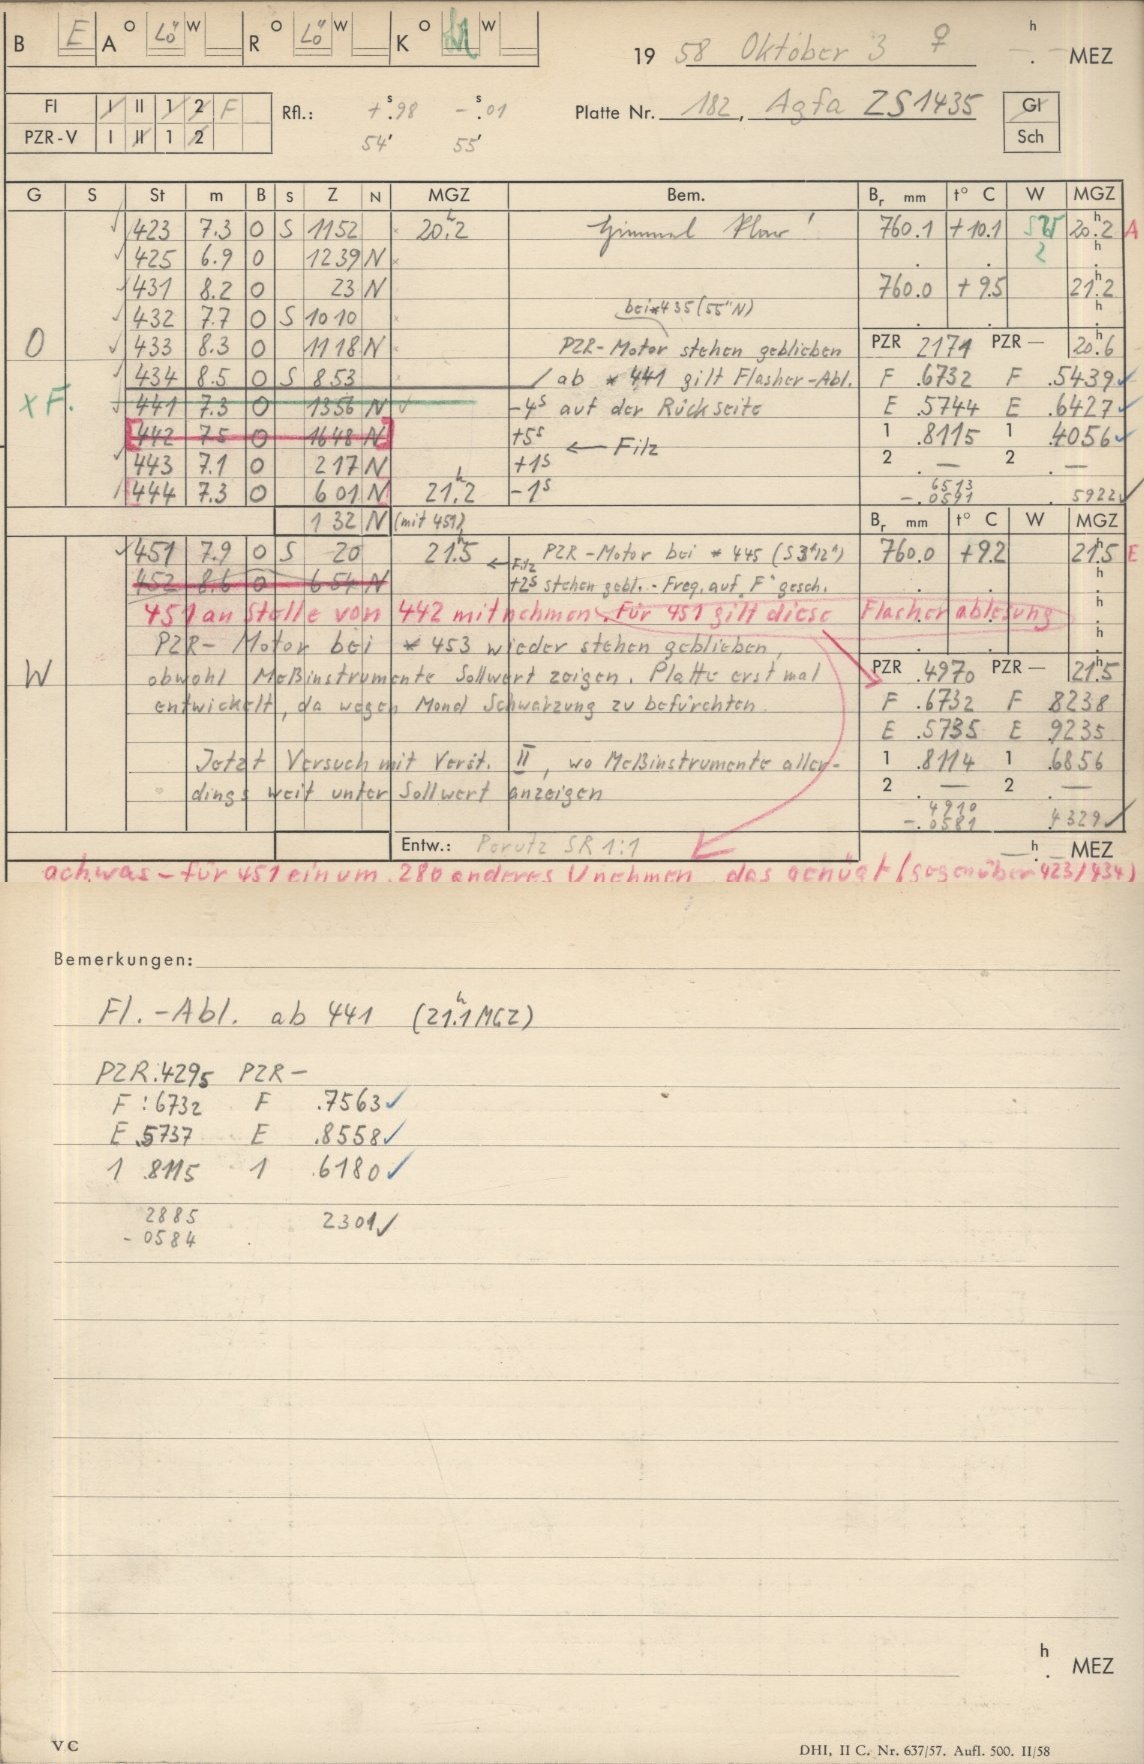 B E A O Lö W R O Lö W K O W 19 58 Oktober 3 ♀ h . MEZ
Fl I II 1 2 F Rfl.: + .98 s - .01 s Platte Nr. 182, Agfa ZS1435 Gl
PZR-V I II 1 2 54' 55' Sch
G S St m B S Z N MGZ Bem. Br mm t° C W MGZ
√ 423 7.3 O S 1152 20.2 h Himmel klar! 760.1 +10.1 SW 20.2 h A
√ 425 6.9 O 1239 N 2 h
√ 431 8.2 O 23 N 760.0 +9.5 21.2 h
√ 432 7.7 O S 1010 bei *435 (55"N) h
O √ 433 8.3 O 1118 N PZR-Motor stehen geblieben PZR 2171 PZR — 20.6 h
√ 434 8.5 O S 853 ab * 441 gilt Flasher-Abl. F .6732 F .5439 ✓
×F. √ 441 7.3 O 1356 N √ -4s auf der Rückseite E .5744 E .6427 ✓
[442 7.5 O 1648 N] +5s ← Filz 1 .8115 1 .4056 ✓
√ 443 7.1 O 217 N +1s 2 . — 2 . —
444 7.3 O 601 N 21.2 h -1s 6513 -.0591 . 5922 ✓
132 N (mit 451) Br mm t° C W MGZ
√ 451 7.9 O S 20 21.5 h ← Filz PZR-Motor bei * 445 (S3"12") 760.0 +9.2 21.5 h E
452 8.6 O 654 N +2s stehen gebl. - Freq. auf "F" gesch. h
451 an Stelle von 442 mitnehmen. Für 451 gilt diese Flasherablesung h
PZR- Motor bei * 453 wieder stehen geblieben, h
W obwohl Meßinstrumente Sollwert zeigen. Platte erst mal PZR .4970 PZR — 21.5 h
entwickelt, da wegen Mond Schwärzung zu befürchten. F .6732 F 8238
E .5735 E 9235
Jetzt Versuch mit Verst. II, wo Meßinstrumente aller- 1 .8114 1 .6856
dings weit unter Sollwert anzeigen 2 . — 2 . —
4910 -.0581 4329 ✓
Entw.: Perutz SR 1:1 — h — MEZ
achwas - für 451 ein um .280 anderes U nehmen, das genügt (gegenüber 423/434)
Bemerkungen:
Fl.-Abl. ab 441 (21.1 h MGZ)
PZR .4295 PZR —
F : 6732 F .7563 ✓
E .5737 E .8558 ✓
1 .8115 1 .6180 ✓
2885 2301 ✓
- 0584 .
h
. MEZ
VC DHI, II C. Nr. 637/57. Aufl. 500. II/58